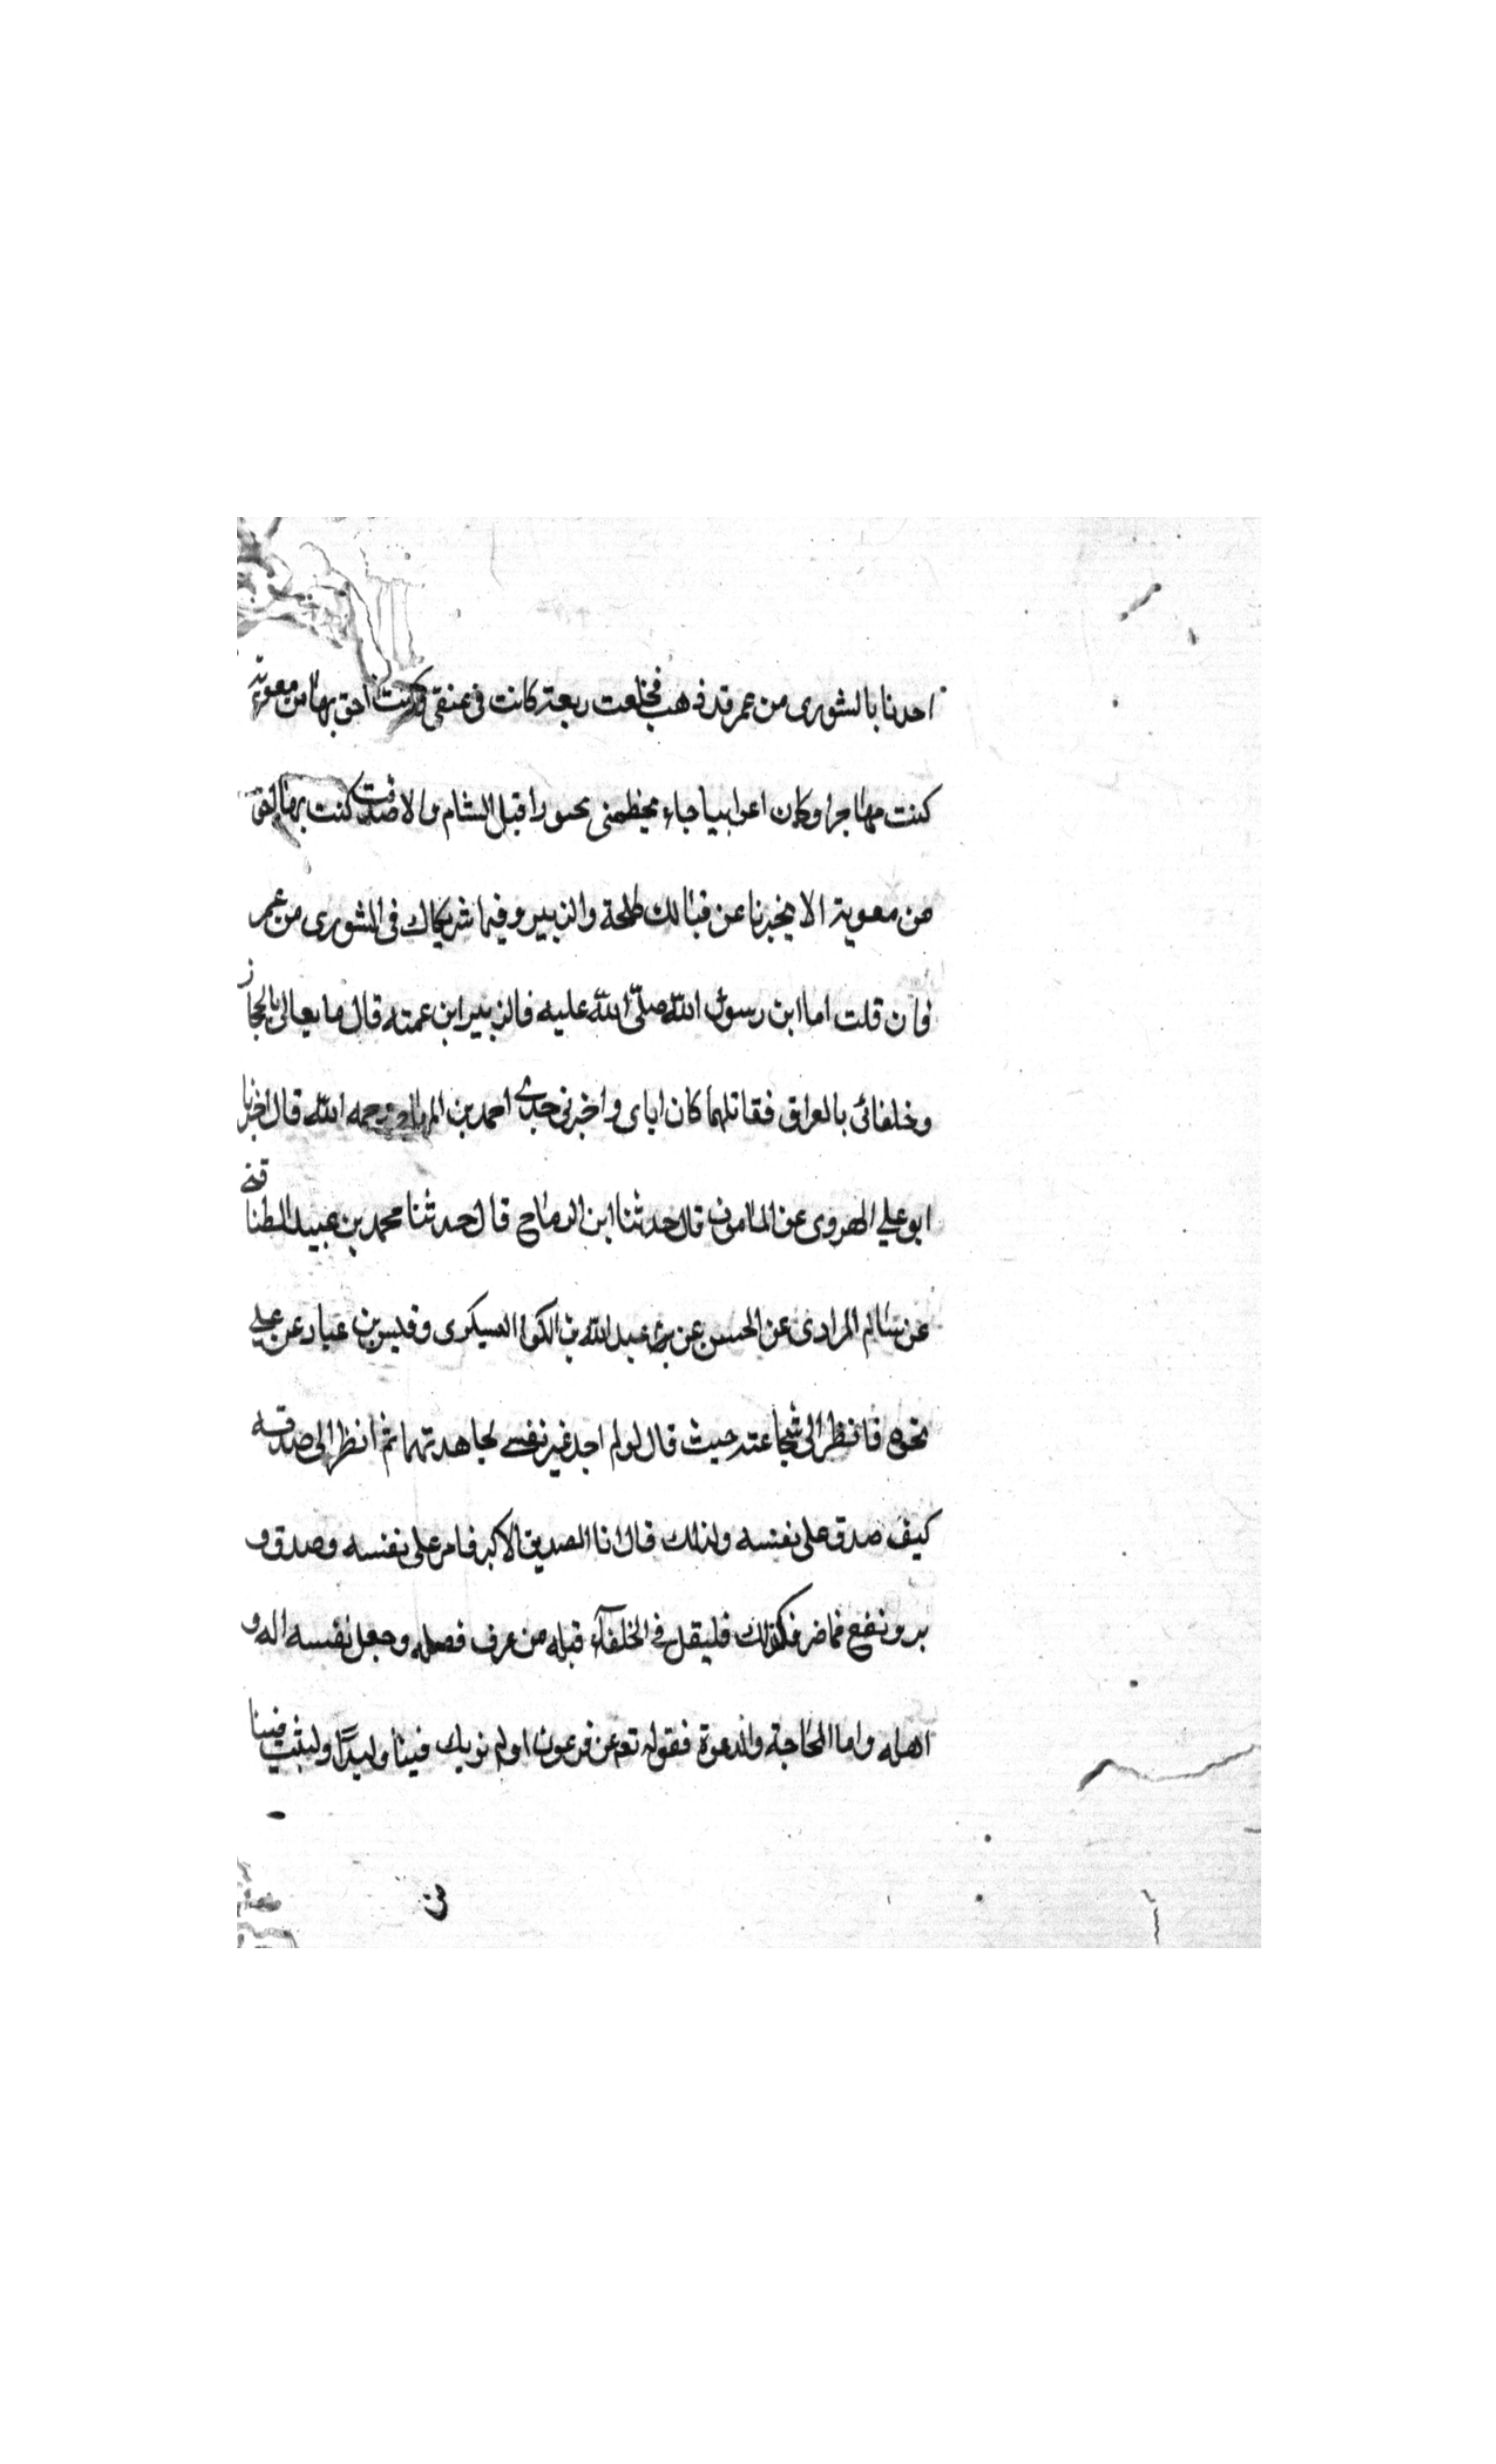 احدنا بالشورى من عمر قد ذهب فخلعت ربعة كانت في عنقي وكنت احق بها من معوية
كنت مهاجرا وكان اعرابيا جاء يخطمني محسورا قبل الشام والا صدقت كنت بها الحق
من معوية الا يخبرنا عن قتالك طلحة والزبير وفيما شريكاك في الشورى من عمر
فان قلت اما ابن رسول الله صلى الله عليه فالزبير ابن عمته قال ما يعالى بالحجاز
وخلفائى بالعراق فقاتلهما كان اباى واخبرنى جدى احمد بن رحمه الله قال اخبرنا
ابو علي الهروى عن المامون قال حدثنا ابن الرماح قال حدثنا محمد بن عبيد الطنافسي
عن سالم المرادى عن الحسن عن عبد الله بن الكوا اليسكرى وقيس بن عباد عن علي
نحوه فانظر الى شجاعته حيث قال لو لم اجد غير نفسي لجاهدتهما ثم انظر الى صدقه
كيف صدق على نفسه ولذلك قال انا الصديق الاكبر فامر على نفسه وصدق و
بر ونفع فما ضر فكذلك فليقل في الخلفآء قبله من عرف فضله وجعل نفسه اله و
اهله واما الحاجة والدعوة فقوله تع عن فرعون اولم نربك فينا وليدًا ولبثت فينا